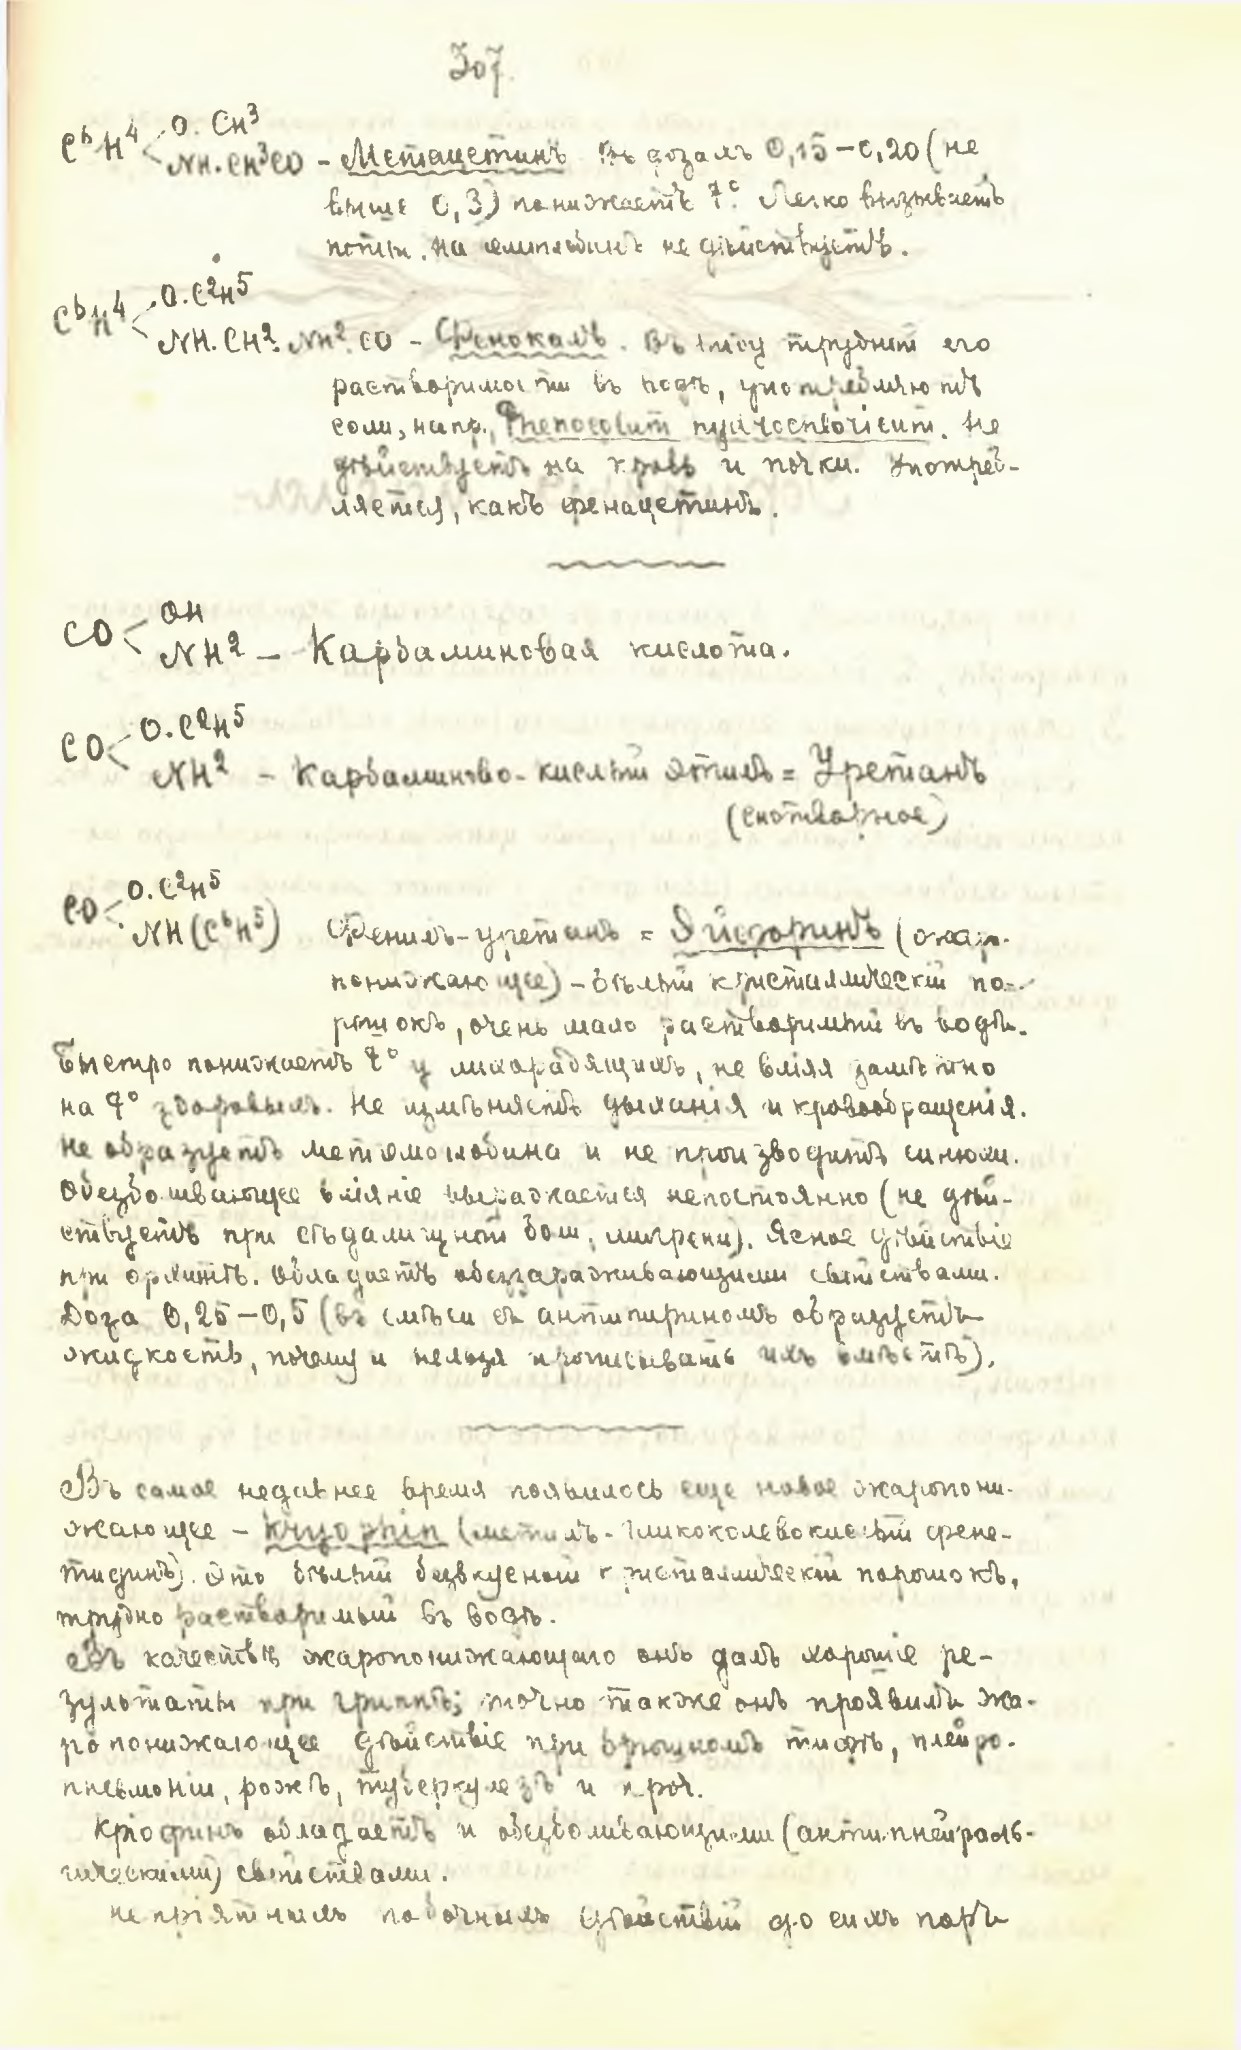 307.
C⁶H⁴ < O.CH³
NH.CH³CO – Метацетинъ. Въ дозахъ 0,15–0,20 (не
выше 0,3) понижаетъ t°. Легко вызываетъ
поты. На гемоглобинъ не дѣйствуетъ.
C⁶H⁴ < O.C²H⁵
NH.CH².NH².CO – Фенокалъ. Въ виду трудной его
растворимости въ водѣ, употребляютъ
соли, напр., Phenocolum hydrochloricum. Не
дѣйствуетъ на кровь и почки. Употреб-
ляется, какъ фенацетинъ.
CO < OH
NH² – Карбаминовая кислота.
CO < O.C²H⁵
NH² – Карбаминово-кислый этилъ = Уретанъ
(снотворное)
CO < O.C²H⁵
NH(C⁶H⁵) Фенилъ-уретанъ = Эйфоринъ (жаро-
понижающее) – бѣлый кристаллическій по-
рошокъ, очень мало растворимый въ водѣ.
Быстро понижаетъ t° у лихорадящихъ, не вліяя замѣтно
на t° здоровыхъ. Не измѣняетъ дыханія и кровообращенія.
Не образуетъ метгемоглобина и не производитъ синюхи.
Обезболивающее вліяніе выражается непостоянно (не дѣй-
ствуетъ при сѣдалищной боли, мигрени). Ясное дѣйствіе
при орхитѣ. Обладаетъ обеззараживающими свойствами.
Доза 0,25–0,5 (въ смѣси съ антипириномъ образуетъ
жидкость, почему и нельзя прописывать ихъ вмѣстѣ).
Въ самое недавнее время появилось еще новое жаропони-
жающее – Kryophin (метилъ-гликоколевокислый фене-
тидинъ). Это бѣлый безвкусный кристаллическій порошокъ,
трудно растворимый въ водѣ.
Въ качествѣ жаропонижающаго онъ далъ хорошіе ре-
зультаты при гриппѣ; точно также онъ проявилъ жа-
ропонижающее дѣйствіе при брюшномъ тифѣ, плейро-
пневмоніи, рожѣ, туберкулезѣ и проч.
Кріофинъ обладаетъ и обезболивающими (антиннейраль-
гическими) свойствами.
Непріятныхъ побочныхъ дѣйствій до сихъ поръ